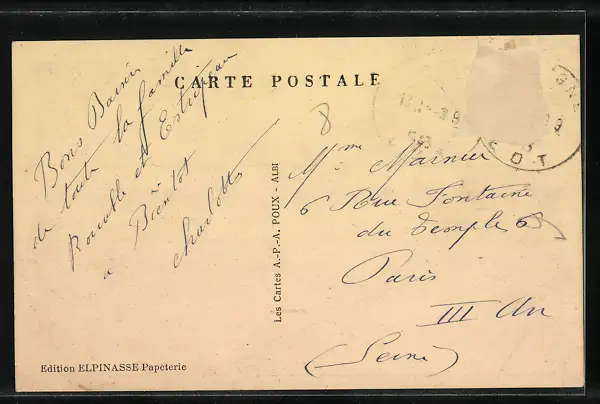 CARTE POSTALE
Bons Baisers
de toute la famille
et
a Bientot
Charlotte
Les Cartes A.-P.-A. POUX - ALBI
8
Mme Marnier
6 Rue Fontaine
du Temple 6
Paris
III Arr
(Seine)
LOT
Edition ELPINASSE Papeterie